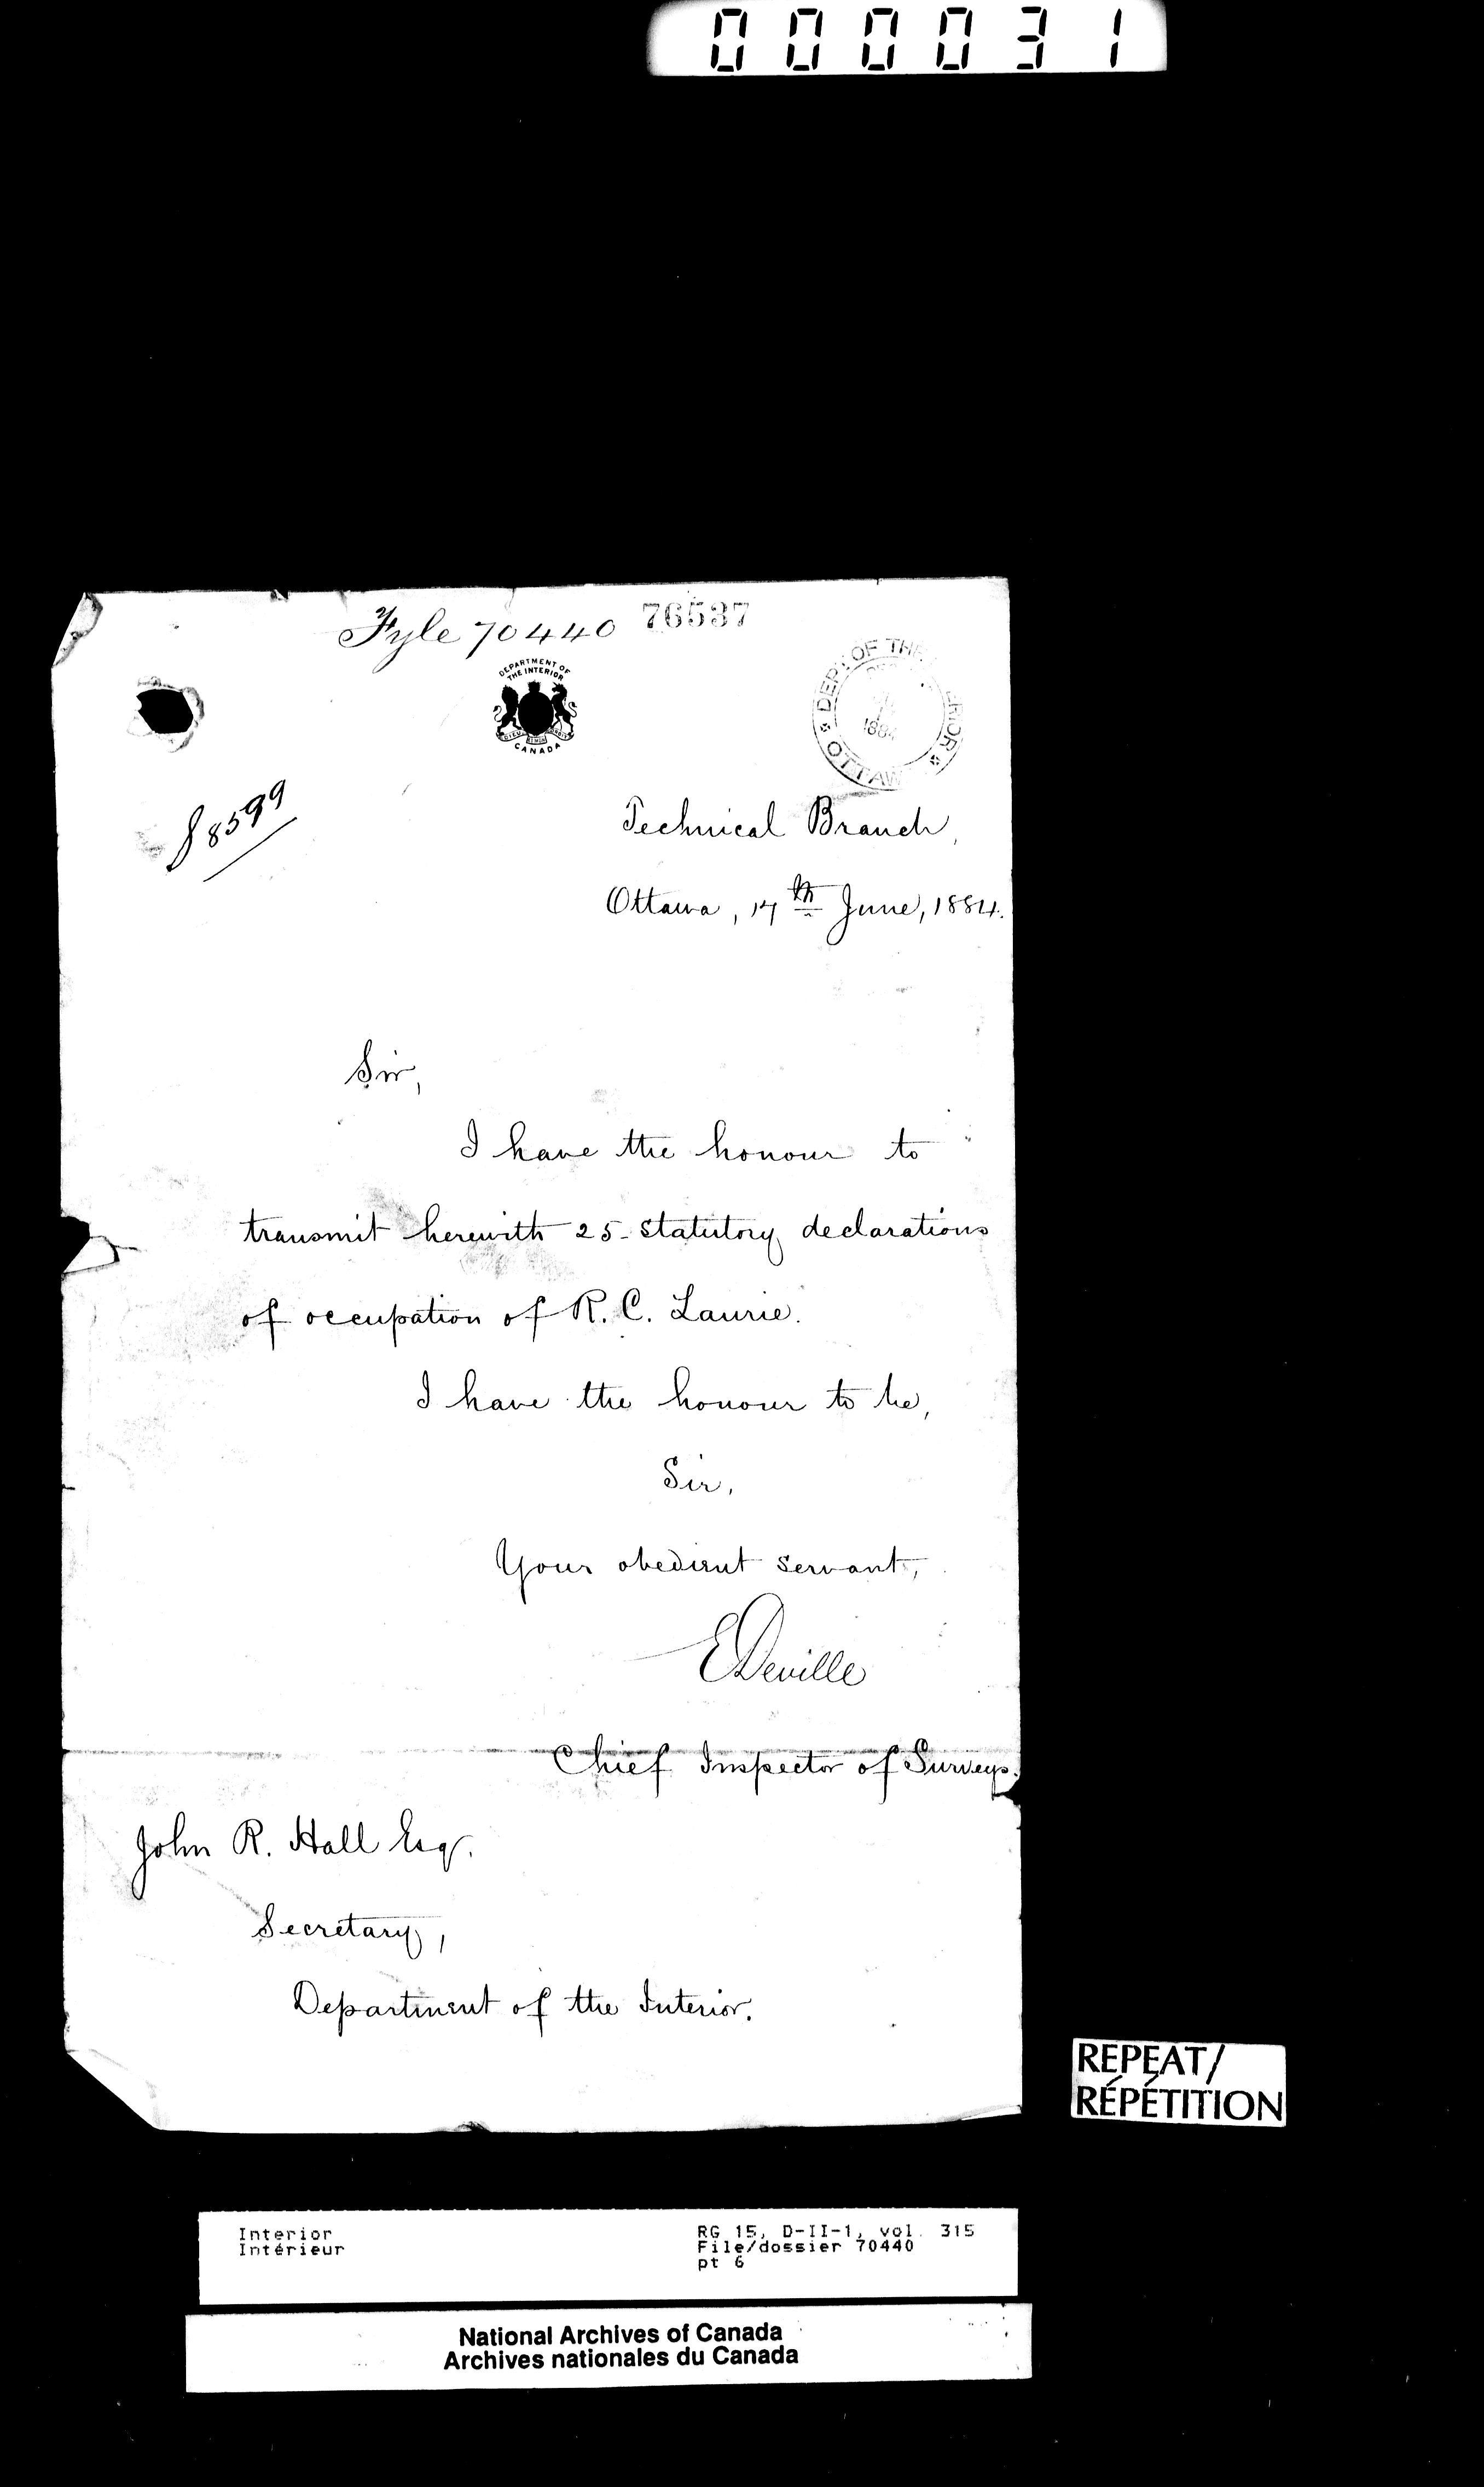 000031
Fyle 70440 76537
DEPARTMENT OF
THE INTERIOR
CANADA
DEPT OF THE
OTTAW
188
8599
Technical Branch,
Ottawa, 17th June, 1884.
Sir,
I have the honour to
transmit herewith 25 statutory declarations
of occupation of R. C. Laurie.
I have the honour to be,
Sir,
Your obedient servant,
E Deville
Chief Inspector of Surveys.
John R. Hall Esq.
Secretary,
Department of the Interior.
REPEAT/
RÉPÉTITION
Interior
Intérieur
RG 15, D-II-1, vol. 315
File/dossier 70440
pt 6
National Archives of Canada
Archives nationales du Canada